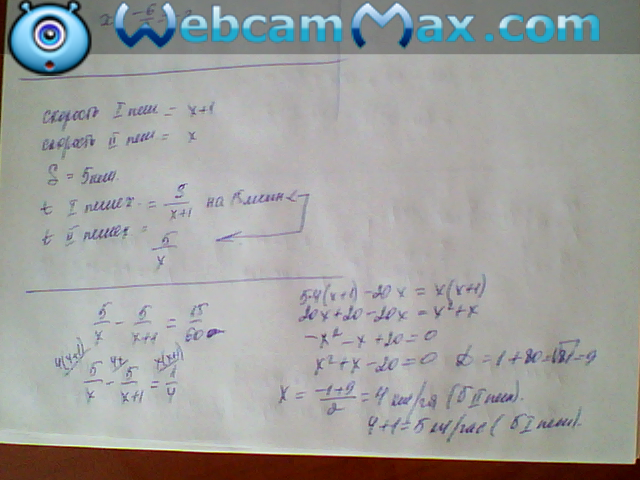 WebcamMax.com
x = -6/2 =
скорость I пеш = x+1
скорость II пеш = x
S = 5 км
t I пешех. = 5/(x+1) на 15 мин <
t II пешех = 5/x
5/x - 5/(x+1) = 15/60
4(x+1) 4x x(x+1)
5/x - 5/(x+1) = 1/4
5·4(x+1) - 20x = x(x+1)
20x+20-20x = x²+x
-x²-x+20=0
x²+x-20=0 D = 1+80=√81=9
x = (-1+9)/2 = 4 км/ч ( II пеш).
4+1=5 км/час ( I пеш).